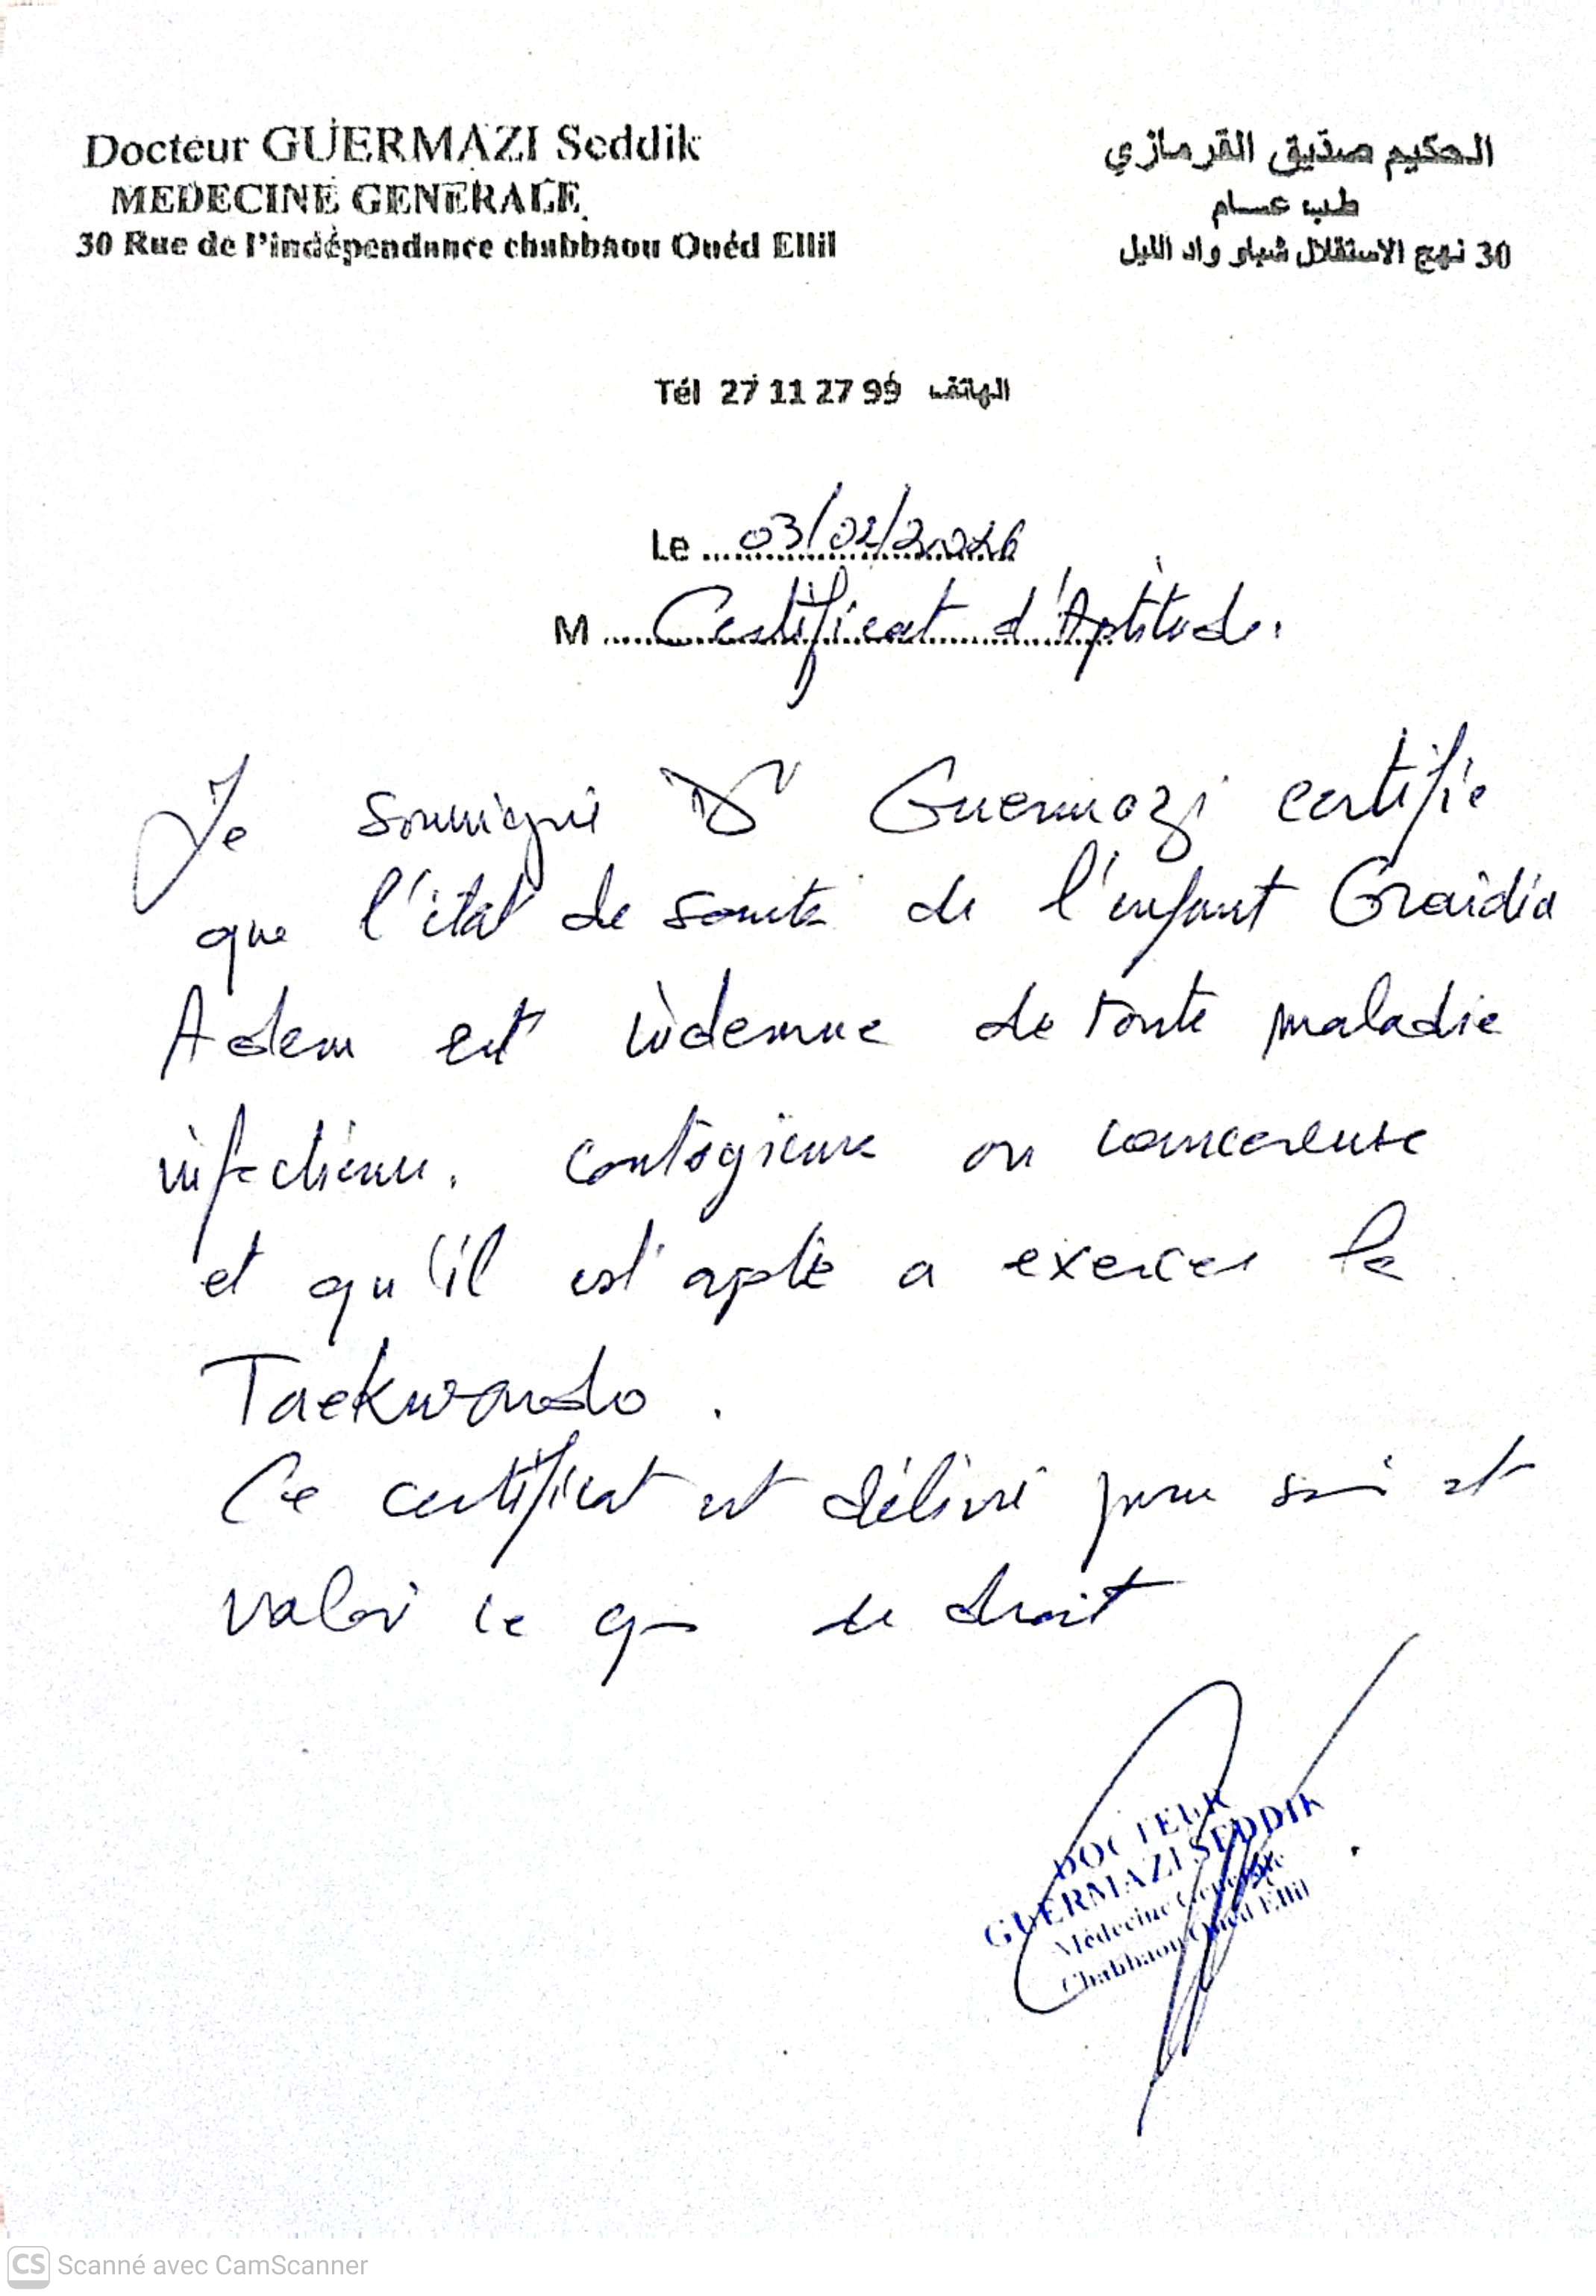 Docteur GUERMAZI Seddik
MEDECINE GENERALE
30 Rue de l'indépendance chabbaou Ouéd Ellil
الحكيم صدّيق القرمازي
طب عــام
30 نهج الاستقلال شباو واد الليل
Tél 27 11 27 99 الهاتف
Le 03/02/2026
M Certificat d'Aptitude.
Je soussigné Dr Guermazi certifie
que l'état de santé de l'enfant Graidia
Adem est indemne de toute maladie
infectieuse. contagieuse ou cancereuse
et qu'il est apte a exercer le
Taekwondo.
Ce certificat est délivré pour servir et
valoir ce que de droit
DOCTEUR
GUERMAZI SEDDIK
Médecine Generale
Chabbaou Oued Ellil
CS Scanné avec CamScanner